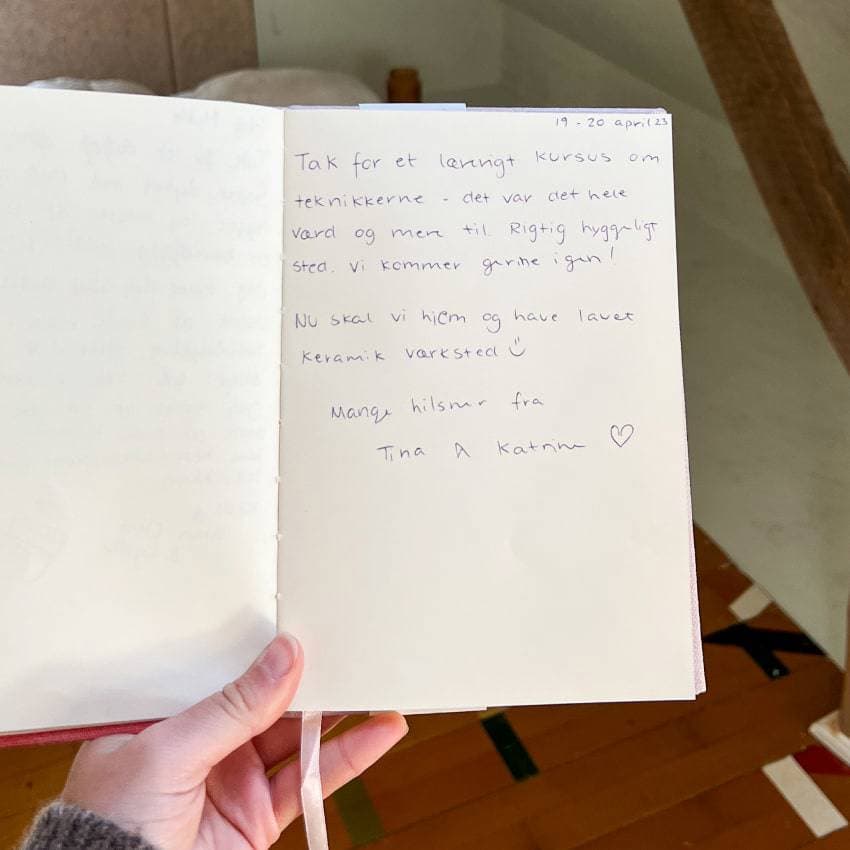 19 - 20 april 23
Tak for et lærerigt kursus om
teknikkerne - det var det hele
værd og mere til. Rigtig hyggeligt
sted. Vi kommer gerne igen!
Nu skal vi hjem og have lavet
keramik værksted
Mange hilsner fra
Tina & Katrine